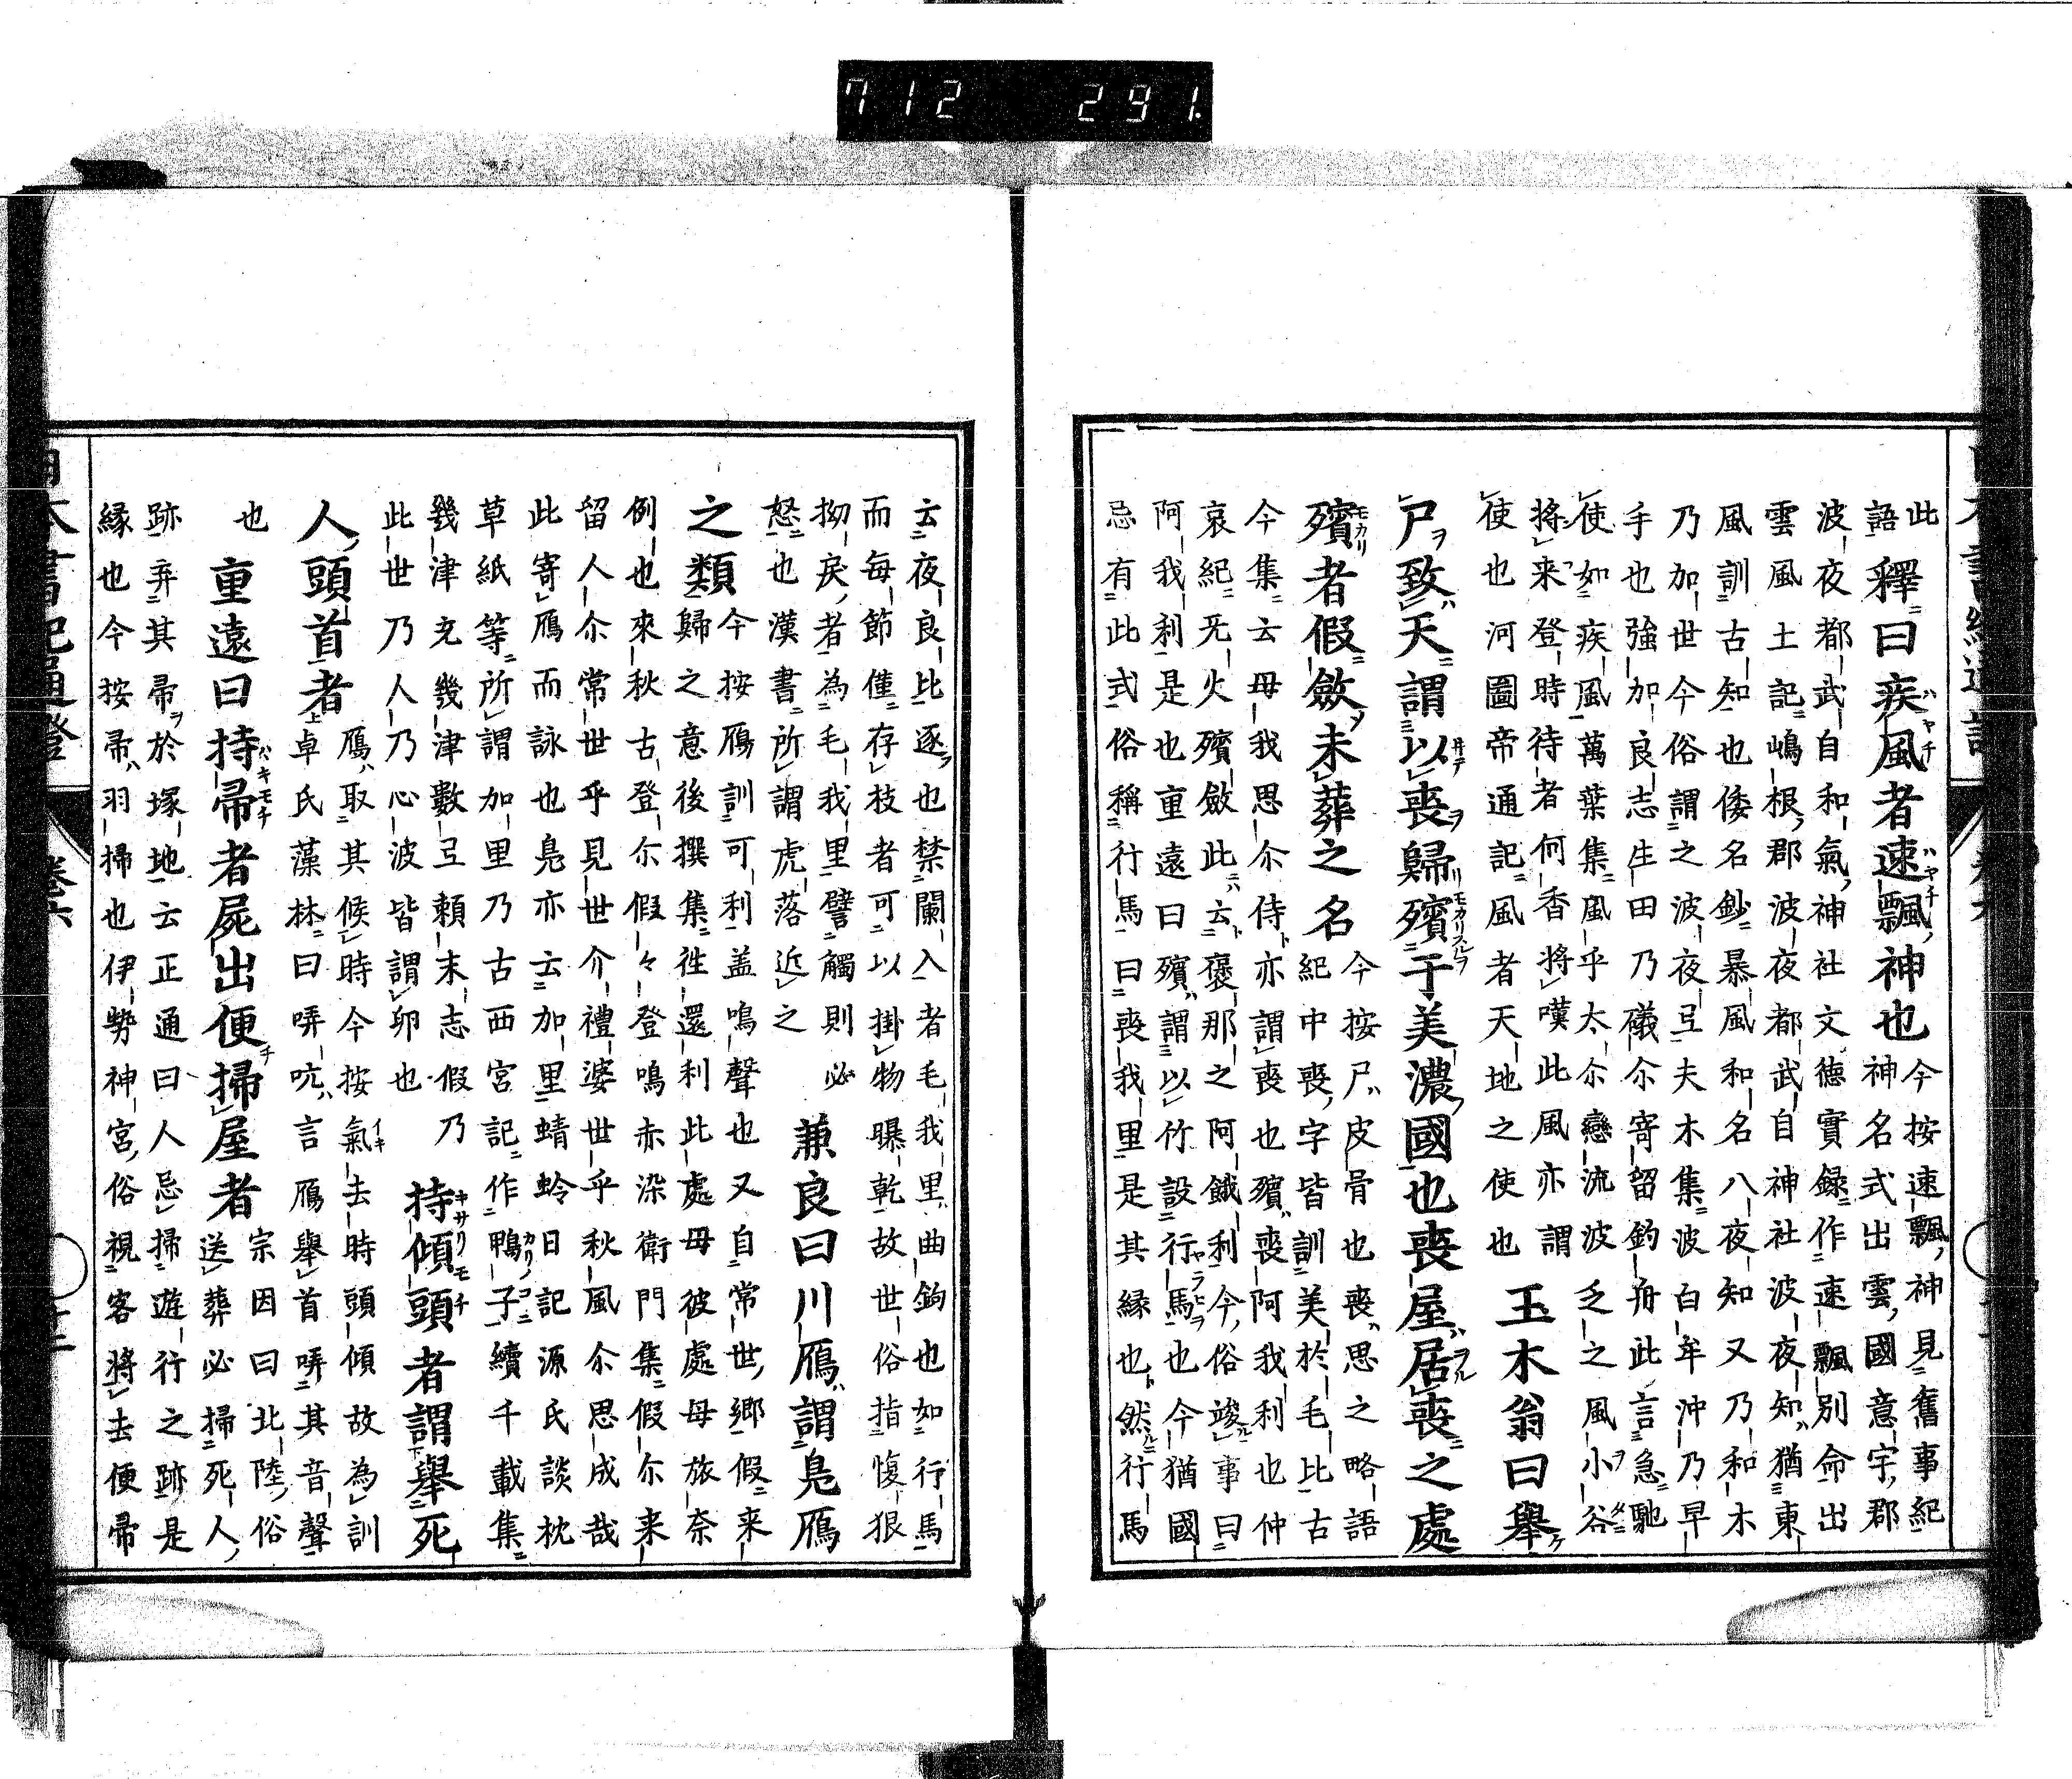 712 291.
此
語 釋曰疾風者速飄神也 今按速飄神見舊事紀
神名式出雲國意宇郡
波夜都武自和氣神社文德實録作速飄別命出
雲風土記嶋根郡波夜都武自神社波夜知猶東
風訓古知也倭名鈔暴風和名八夜知又乃和木
乃加世今俗謂之波夜弖夫木集波白牟沖乃早
手也強加良志生田乃礒尒寄留釣舟此言急馳
使如疾風萬葉集風乎太尒戀流波乏之風小谷
將来登時待者何香將嘆此風亦謂
使也河圖帝通記風者天地之使也 玉木翁曰舉
尸致天謂以喪歸殯于美濃國也喪屋居喪之處
殯者假斂未葬之名 今按尸皮骨也喪思之略語
紀中喪字皆訓美於毛比古
今集云毋我思尒侍亦謂喪也殯喪阿我利也仲
哀紀旡火殯斂此云褒那之阿餓利今俗竣事曰
阿我利是也重遠曰殯謂以竹設行馬也今猶國
忌有此式俗稱行馬曰喪我里是其縁也然行馬
云夜良比逐也禁闌入者毛我里曲鉤也如行馬
而每節僅存枝者可以掛物曝乾故世俗指愎狠
拗戾者為毛我里譬觸則必
怒也漢書所謂虎落近之 兼良曰川鴈謂鳧鴈
之類 今按鴈訓可利盖鳴聲也又自常世鄉假来
歸之意後撰集徃還利此處毋彼處毋旅奈
例也來秋古登尒假々登鳴赤染衛門集假尒来
留人尒常世乎見世介禮婆世乎秋風尒思成哉
此寄鴈而詠也鳧亦云加里蜻蛉日記源氏談枕
草紙等所謂加里乃古西宮記作鴨子續千載集
幾津充幾津數弖頼末志假乃
此世乃人乃心波皆謂卯也 持傾頭者謂舉死
人頭首者 鴈取其候時今按氣去時頭傾故為訓
卓氏藻林曰哢吭言鴈舉首哢其音聲
也 重遠曰持帚者屍出便掃屋者 宗因曰北陸俗
送葬必掃死人
跡弃其帚於塚地云正通曰人忌掃遊行之跡是
縁也今按帚羽掃也伊勢神宮俗視客將去便帚